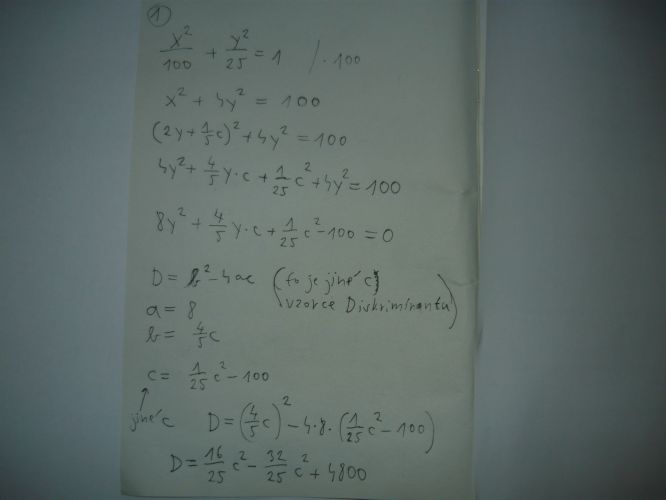 1
x²/100 + y²/25 = 1 / · 100
x² + 4y² = 100
(2y + 1/5 c)² + 4y² = 100
4y² + 4/5 y·c + 1/25 c² + 4y² = 100
8y² + 4/5 y·c + 1/25 c² - 100 = 0
D = b² - 4ac (to je jiné c
vzorce Diskriminantu)
a = 8
b = 4/5 c
c = 1/25 c² - 100
jiné c D = (4/5 c)² - 4·8·(1/25 c² - 100)
D = 16/25 c² - 32/25 c² + 4800